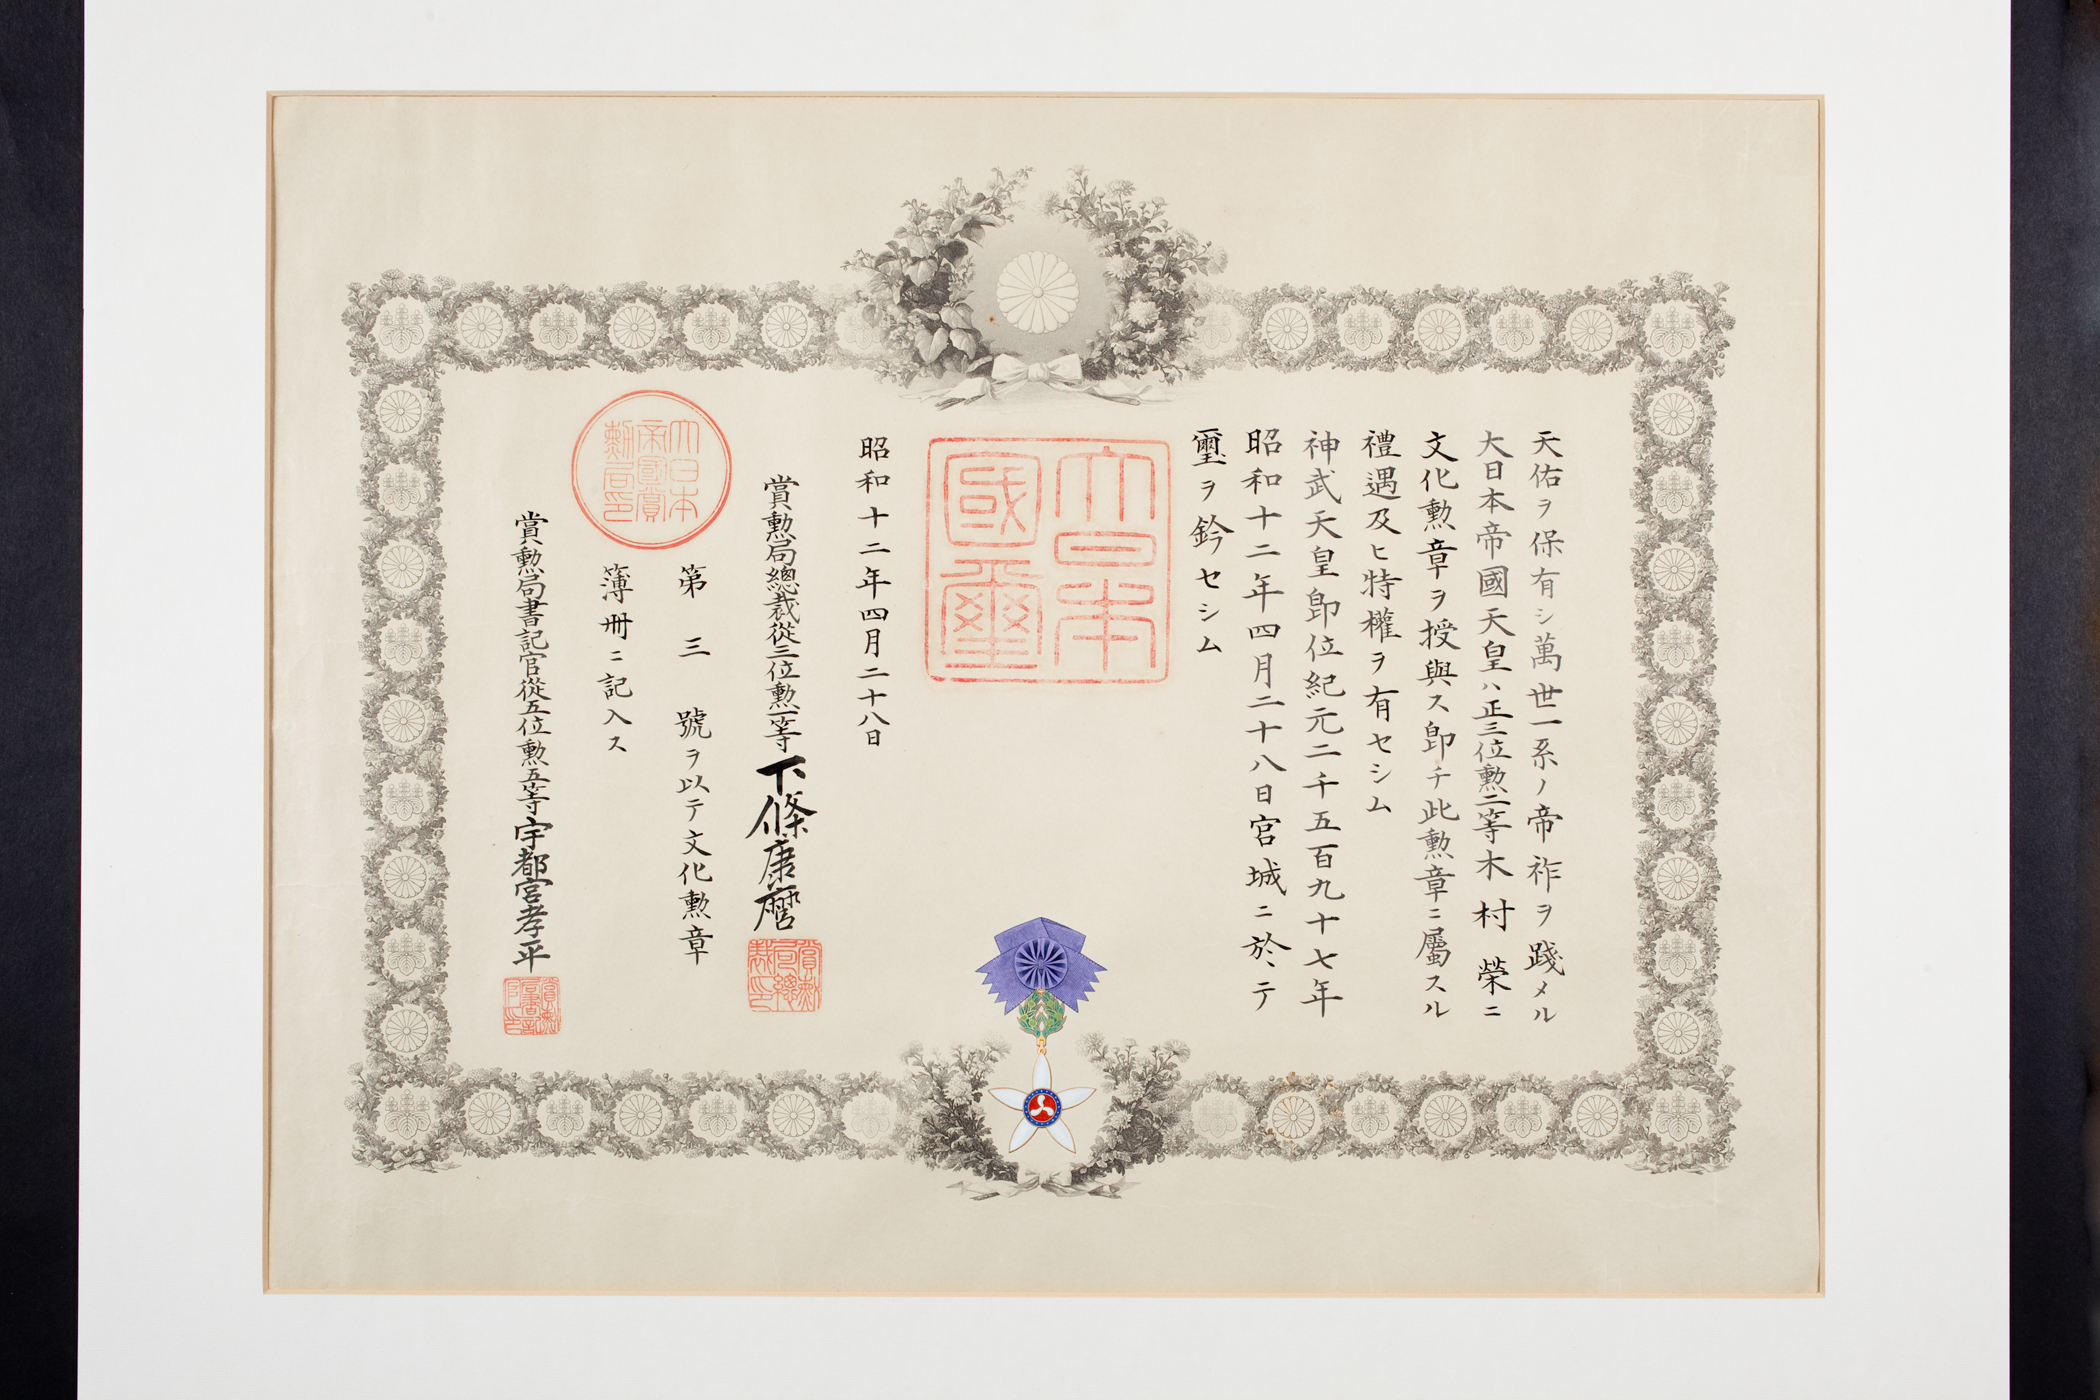 天佑ヲ保有シ萬世一系ノ帝祚ヲ踐メル
大日本帝國天皇ハ正三位勲二等木村榮ニ
文化勲章ヲ授與ス卽チ此勲章ニ屬スル
禮遇及ヒ特權ヲ有セシム
神武天皇卽位紀元二千五百九十七年
昭和十二年四月二十八日宮城ニ於テ
璽ヲ鈐セシム
大日本
國璽
昭和十二年四月二十八日
賞勲局總裁從三位勲一等下條康麿
賞勲局總裁印
第三號ヲ以テ文化勲章
簿冊ニ記入ス
大日本
帝國賞
勲局印
賞勲局書記官從五位勲五等宇都宮孝平